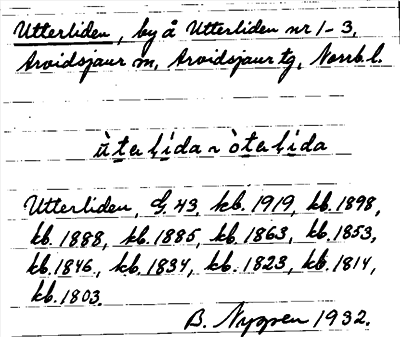 Utterliden, by å Utterliden nr 1-3,
Arvidsjaur sn, Arvidsjaur tg, Norrb. l.
ùterlída ~ òterlída
Utterliden, G. 43, kb. 1919, kb. 1898,
kb. 1888, kb. 1885, kb. 1863, kb. 1853,
kb. 1846, kb. 1834, kb. 1823, kb. 1814,
kb. 1803.
B. Nyggren 1932.